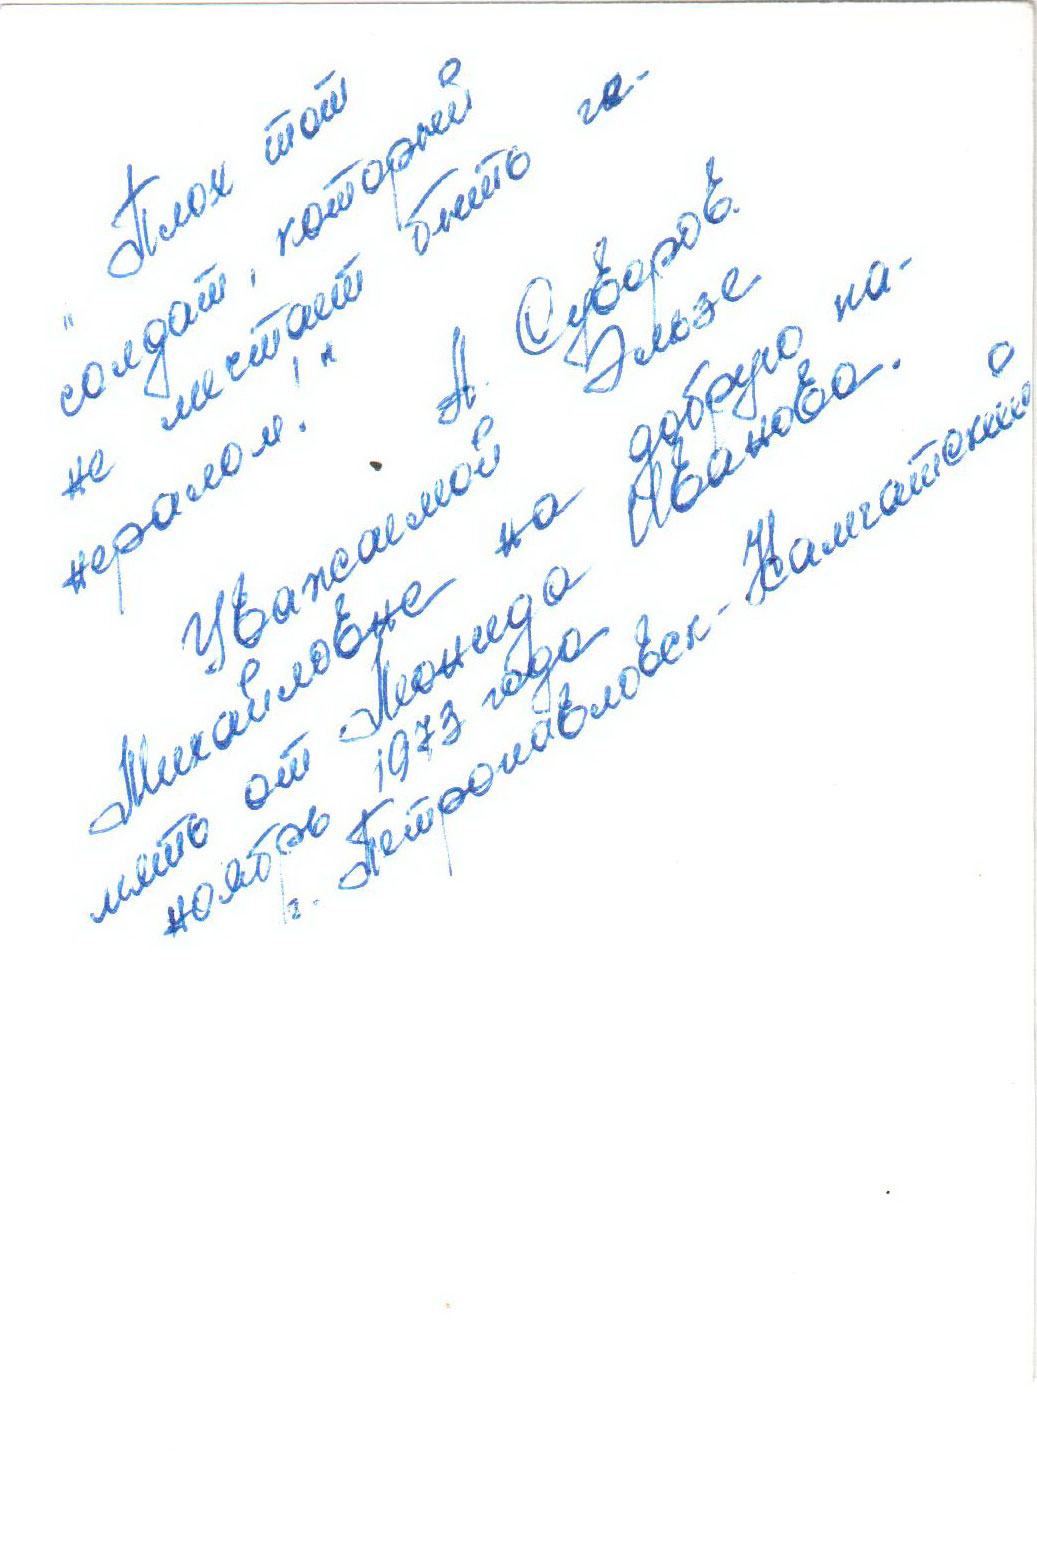 „Плох тот
солдат, который
не мечтает быть ге-
нералом.!"
А. Суворов.
Уважаемой Эльзе
Михайловне на добрую па-
мять от Леонида Иванова.
ноябрь 1973 года
г. Петропавловск-Камчатский